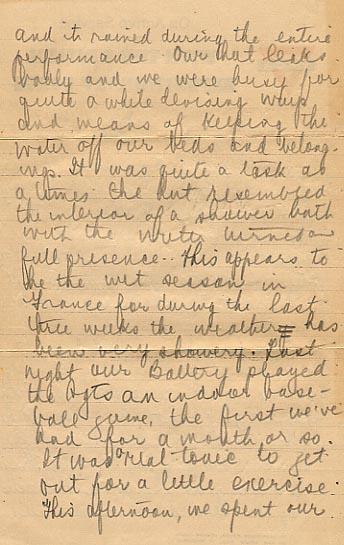 and it rained during the entire
performance. Our hut leaks
badly and we were busy for
quite a while devising ways
and means of keeping the
water off our beds and belong-
ings. It was quite a task as
at times the hut resembled
the interior of a shower bath
with the water turned on
full presence. This appears to
be the wet season in
France for during the last
three weeks the weather has
been very showery. Last
night our Battery played
the Hgts an indoor base-
ball game, the first we've
had for a month or so.
It was a real tonic to get
out for a little exercise.
This afternoon, we spent our